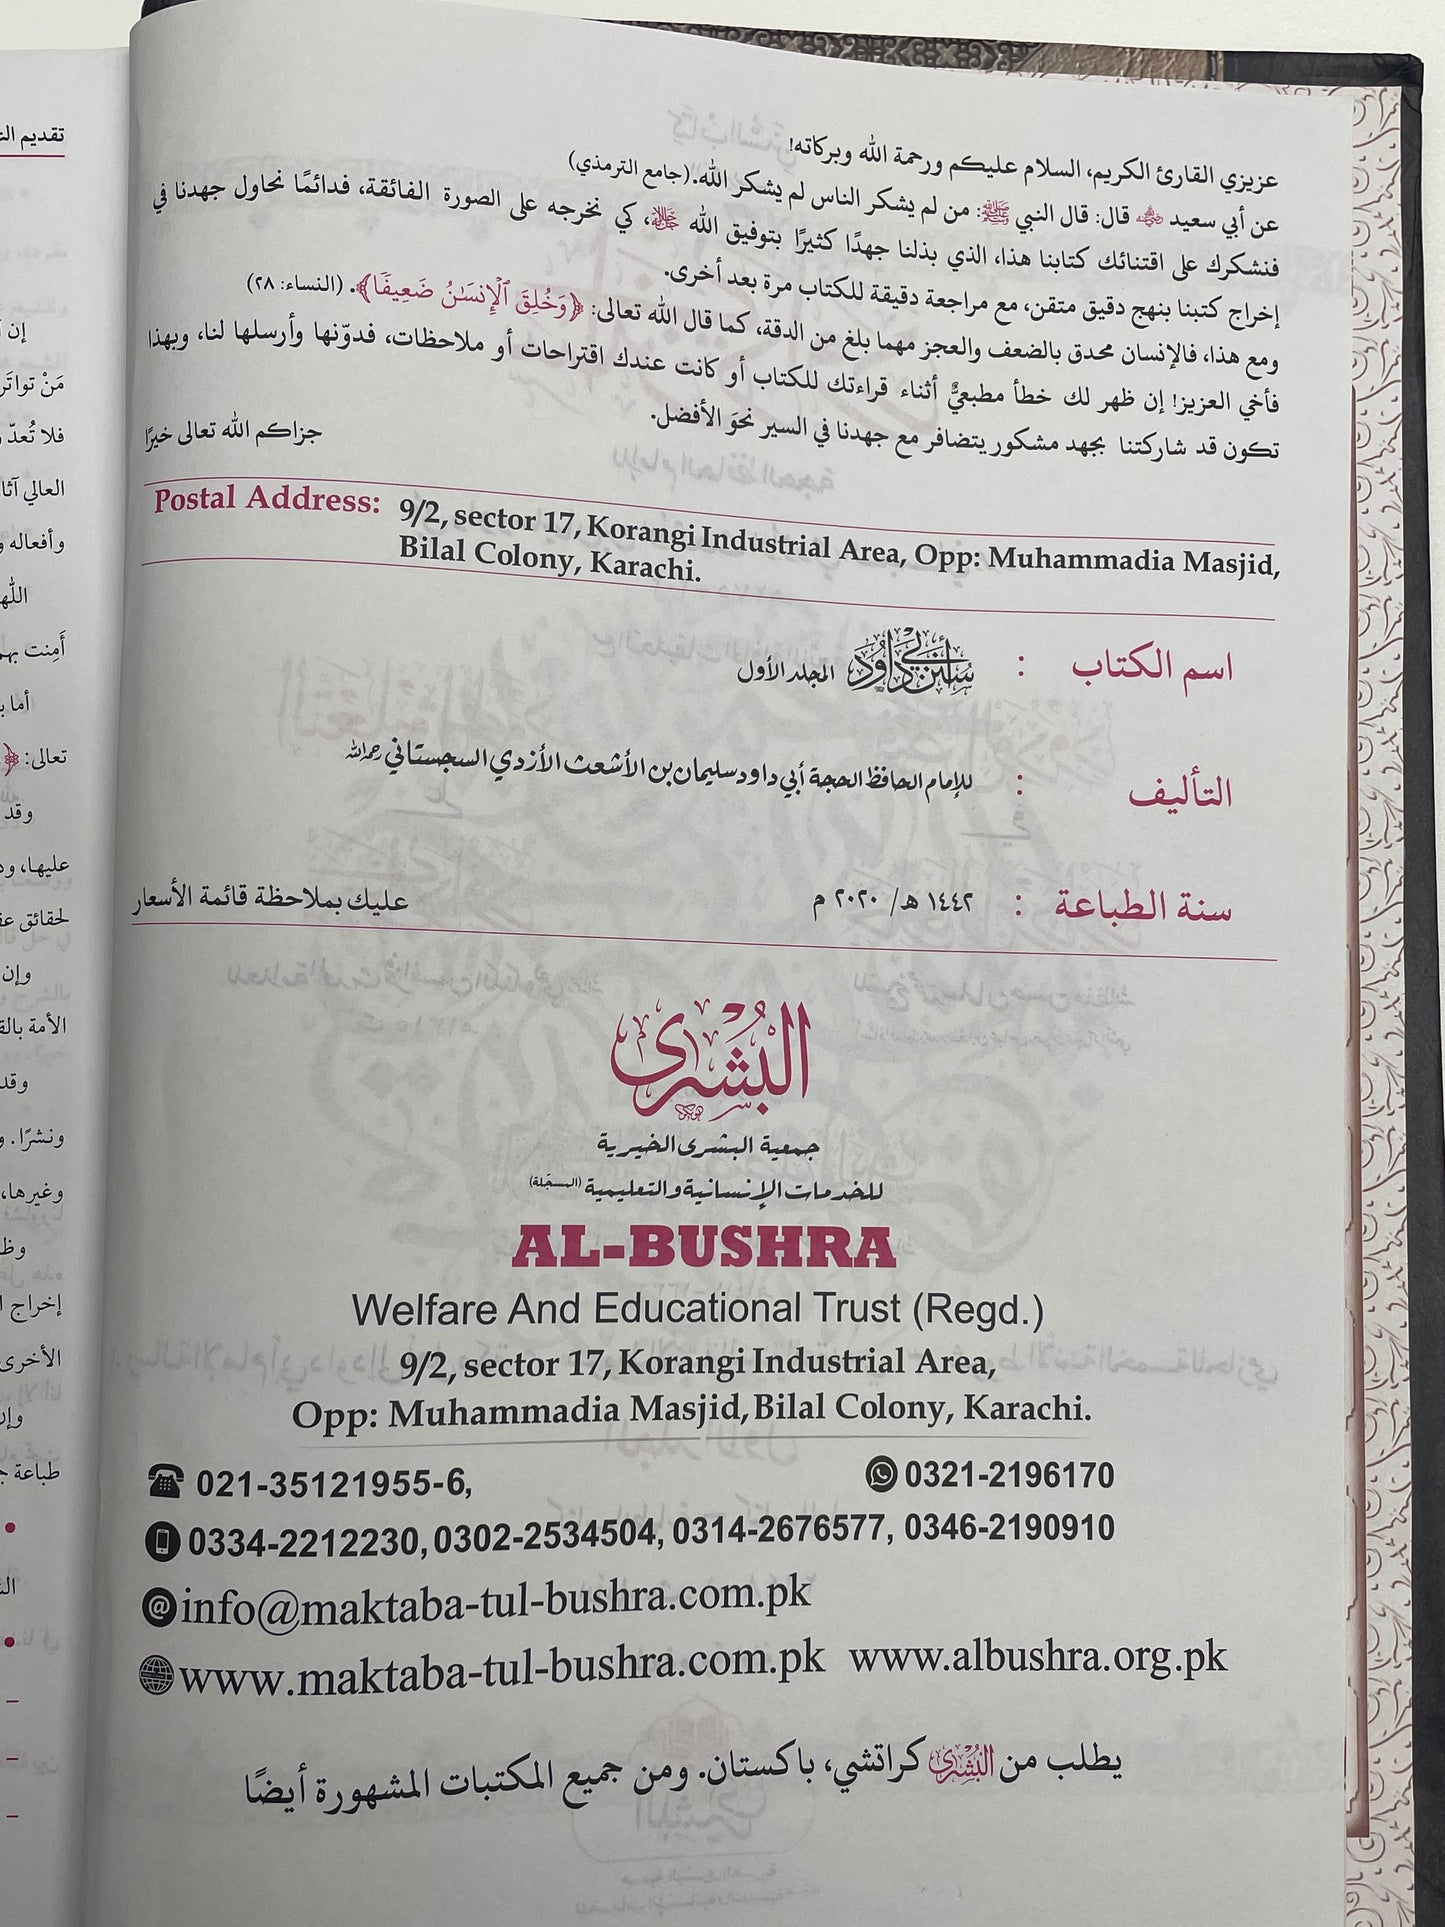 عزيزي القارئ الكريم، السلام عليكم ورحمة الله وبركاته!
عن أبي سعيد ﵁ قال: قال النبي ﷺ: من لم يشكر الناس لم يشكر الله. (جامع الترمذي)
فنشكرك على اقتنائك كتابنا هذا، الذي بذلنا جهدًا كثيرًا بتوفيق الله ﷻ، كي نخرجه على الصورة الفائقة، فدائمًا نحاول جهدنا في
إخراج كتبنا بنهج دقيق متقن، مع مراجعة دقيقة للكتاب مرة بعد أخرى.
ومع هذا، فالإنسان محدق بالضعف والعجز مهما بلغ من الدقة، كما قال الله تعالى: ﴿وَخُلِقَ ٱلْإِنسَـٰنُ ضَعِيفًا﴾. (النساء: ٢٨)
فأخي العزيز! إن ظهر لك خطأ مطبعيٌّ أثناء قراءتك للكتاب أو كانت عندك اقتراحات أو ملاحظات، فدوّنها وأرسلها لنا، وبهذا
تكون قد شاركتنا بجهد مشكور يتضافر مع جهدنا في السير نحوَ الأفضل.
جزاكم الله تعالى خيرًا
Postal Address: 9/2, sector 17, Korangi Industrial Area, Opp: Muhammadia Masjid,
Bilal Colony, Karachi.
اسم الكتاب : سنن أبي داود المجلد الأول
التأليف : للإمام الحافظ الحجة أبي داود سليمان بن الأشعث الأزدي السجستاني رحمه الله
سنة الطباعة : ١٤٤٢ هـ/ ٢٠٢٠ م عليك بملاحظة قائمة الأسعار
البُشرى
جمعية البشرى الخيرية
للخدمات الإنسانية والتعليمية (المسجّلة)
AL-BUSHRA
Welfare And Educational Trust (Regd.)
9/2, sector 17, Korangi Industrial Area,
Opp: Muhammadia Masjid, Bilal Colony, Karachi.
021-35121955-6, 0321-2196170
0334-2212230, 0302-2534504, 0314-2676577, 0346-2190910
info@maktaba-tul-bushra.com.pk
www.maktaba-tul-bushra.com.pk www.albushra.org.pk
يطلب من البُشرى كراتشي، باكستان. ومن جميع المكتبات المشهورة أيضًا